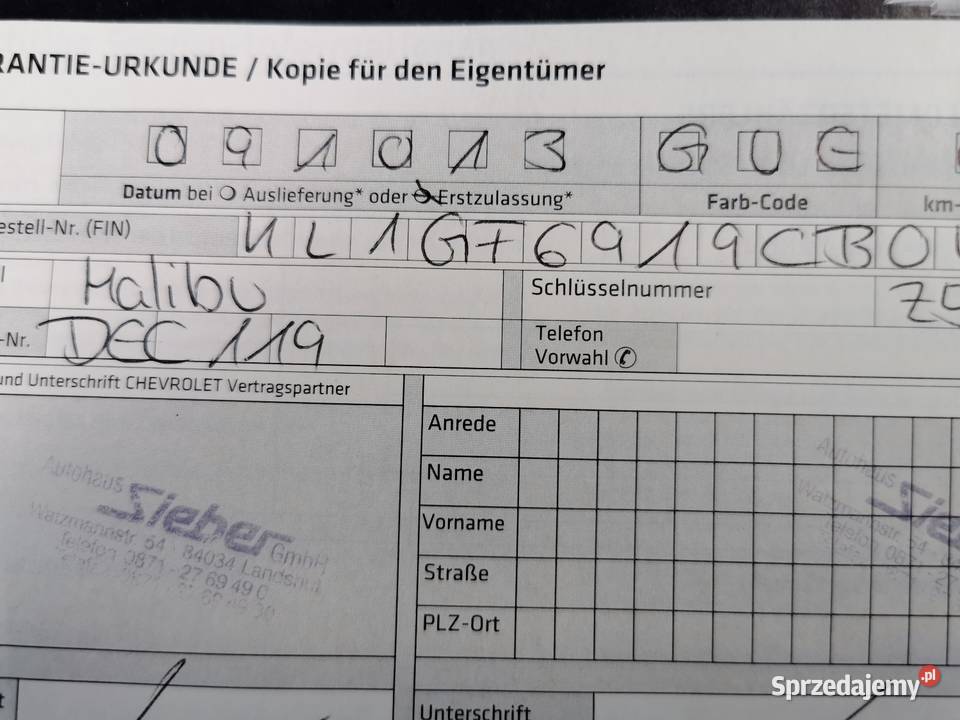 RANTIE-URKUNDE / Kopie für den Eigentümer
091013 GUE
Datum bei Auslieferung* oder Erstzulassung* Farb-Code km-
estell-Nr. (FIN) KL1GF6919CB0
Malibu Schlüsselnummer Z5
-Nr. DEC 119 Telefon
Vorwahl
und Unterschrift CHEVROLET Vertragspartner
Anrede
Name
Vorname
Straße
PLZ-Ort
Autohaus Sieber GmbH
Watzmannstr. 54 · 84034 Landshut
Telefon 0871 - 27 69 49 0
Autohaus Sie
Watzmannstr. 54
Telefon 0871 - 27
Unterschrift
Sprzedajemy.pl